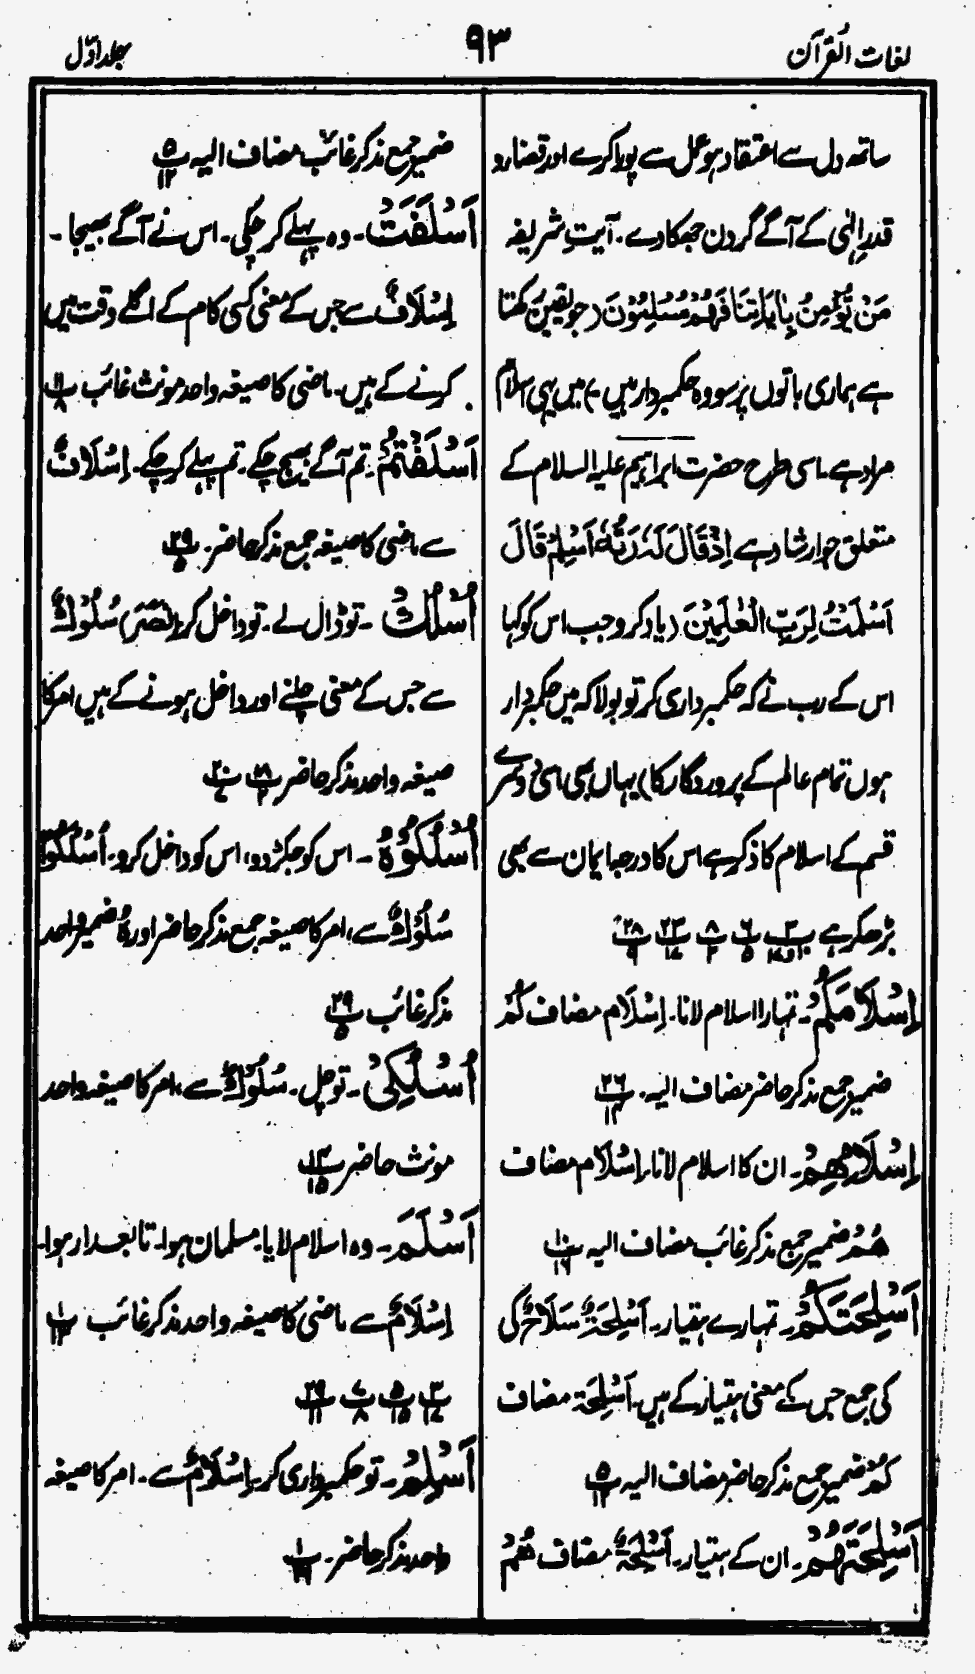 لغات القرآن
۹۳
جلد اوّل
ساتھ دل سے اعتقاد ہو عمل سے پورا کرے اور قضا و
قدرِ الٰہی کے آگے گردن جھکا دے۔ آیتِ شریفہ
مَنْ يُّؤْمِنُ بِاٰيٰتِنَا فَهُمْ مُّسْلِمُوْنَ (جو یقین رکھتا
ہے ہماری باتوں پر سو وہ حکمبردار ہیں) میں یہی اسلام
مراد ہے۔ اسی طرح حضرت ابراہیم علیہ السلام کے
متعلق جو ارشاد ہے اِذْ قَالَ لَهٗ رَبُّهٗ اَسْلِمْ قَالَ
اَسْلَمْتُ لِرَبِّ الْعٰلَمِيْنَ (یاد کرو جب اس کو کہا
اس کے رب نے کہ حکمبرداری کر تو بولا کہ میں حکمبردار
ہوں تمام عالم کے پروردگار کا) یہاں بھی اسی دوسرے
قسم کے اسلام کا ذکر ہے اس کا درجہ ایمان سے بھی
بڑھکر ہے
اِسْلَامَكُمْ۔ تمہارا اسلام لانا۔ اِسْلَام مضاف كُمْ
ضمیر جمع مذکر حاضر مضاف الیہ۔ پ ۲۶/۱۴
اِسْلَامِهِمْ۔ ان کا اسلام لانا۔ اِسْلَام مضاف
هُمْ ضمیر جمع مذکر غائب مضاف الیہ پ ۱۰/۱۶
اَسْلِحَتَكُمْ۔ تمہارے ہتیار۔ اَسْلِحَةٌ سَلَاحٌ کی
کی جمع جس کے معنی ہتیار کے ہیں۔ اَسْلِحَة مضاف
كُمْ ضمیر جمع مذکر حاضر مضاف الیہ پ ۵/۱۲
اَسْلِحَتَهُمْ۔ ان کے ہتیار۔ اَسْلِحَةٌ مضاف هُمْ
ضمیر جمع مذکر غائب مضاف الیہ پ ۵/۱۲
اَسْلَفَتْ۔ وہ پہلے کر چکی۔ اس نے آگے بھیجا۔
اِسْلَافٌ سے جس کے معنی کسی کام کے اگلے وقت میں
کرنے کے ہیں۔ ماضی کا صیغہ واحد مونث غائب پ ۱۱/۸
اَسْلَفْتُمْ۔ تم آگے بھیج چکے۔ تم پہلے کر چکے۔ اِسْلَافٌ
سے ماضی کا صیغہ جمع مذکر حاضر۔ پ ۲۹/۵
اُسْلُكْ۔ تو ڈال لے۔ تو داخل کر (نَصَرَ) سُلُوْكٌ
سے جس کے معنی چلنے اور داخل ہونے کے ہیں امر کا
صیغہ واحد مذکر حاضر
اُسْلُكُوْهُ۔ اس کو جکڑ دو، اس کو داخل کرو۔ اُسْلُكُوْا
سُلُوْكٌ سے، امر کا صیغہ جمع مذکر حاضر اور هُ ضمیر واحد
مذکر غائب پ ۲۹/۵
اُسْلُكِىْ۔ تو چل۔ سُلُوْكٌ سے، امر کا صیغہ واحد
مونث حاضر پ ۱۴/۱۵
اَسْلَمَ۔ وہ اسلام لایا۔ مسلمان ہوا۔ تابعدار ہوا۔
اِسْلَامٌ سے ماضی کا صیغہ واحد مذکر غائب
پ ۳/۱۷ پ ۵/۱۵ پ ۷/۸ پ ۲۹/۱۱
اَسْلِمْ۔ تو حکمبرداری کر۔ اِسْلَامٌ سے۔ امر کا صیغہ
واحد مذکر حاضر۔